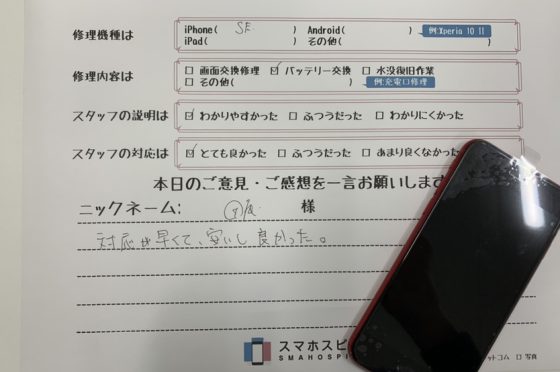 修理機種は
iPhone( SE ) Android( ) 例:Xperia 10 II
iPad( ) その他( )
修理内容は
□ 画面交換修理 ☑ バッテリー交換 □ 水没復旧作業
□ その他( ) 例:充電口修理
スタッフの説明は ☑ わかりやすかった □ ふつうだった □ わかりにくかった
スタッフの対応は ☑ とても良かった □ ふつうだった □ あまり良くなかった
本日のご意見・ご感想を一言お願いします
ニックネーム: 様
対応が早くて、安いし良かった。
スマホスピ
SMAHOSPI
ットコム □ 写真